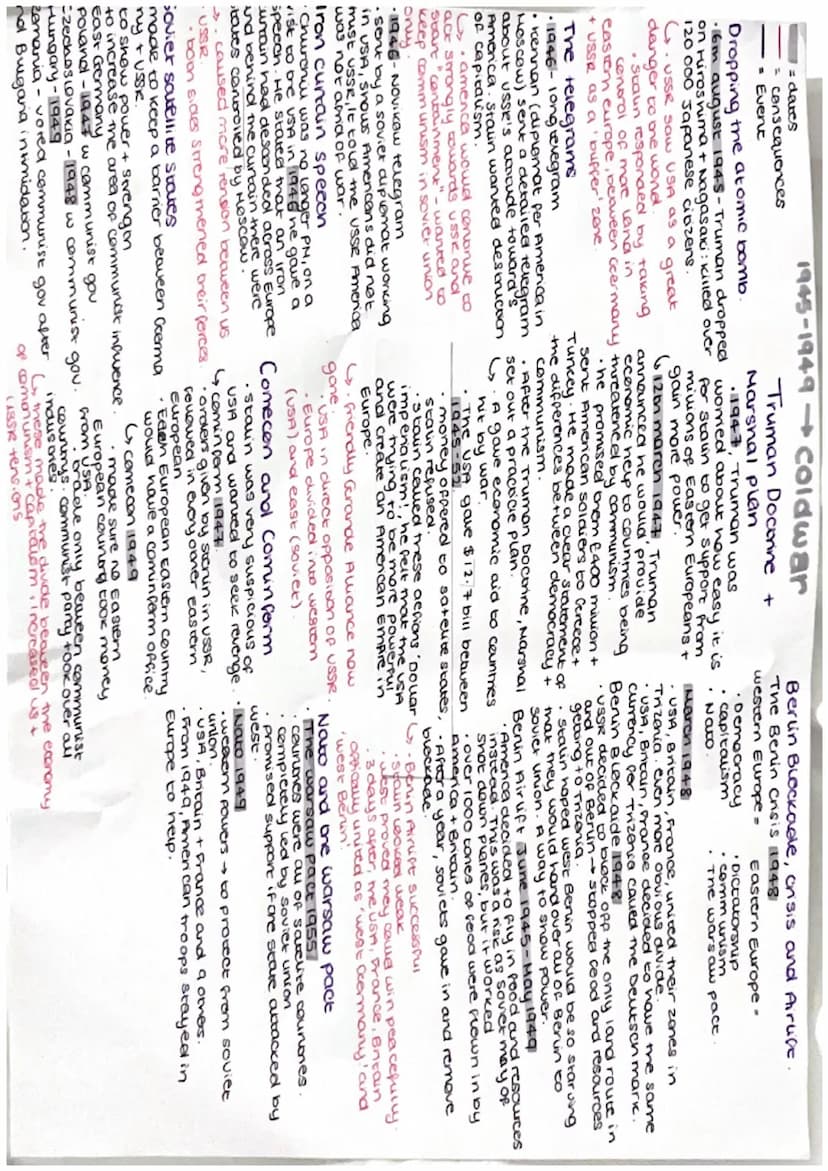 1945-1949 → Coldwar
= dates
= consequences
= Event
Dropping the atomic bomb.
· 6th august 1945 - Truman dropped
on Hiroshima + Nagasaki: killed over
120 000 Japanese citizens.
↳ · USSR saw USA as a great
danger to the world.
· Stalin responded by taking
control of more land in
eastern europe, between Germany
+ USSR as a 'buffer' zone.
The telegrams
· 1946 - long telegram
· Kennan (diplomat per America in
Moscow) sent a detailed telegram
about USSR's attitude towards
America. Stalin wanted destruction
of capitalism.
↳ · America would continue to
act strongly towards USSR and
start "containment" - wanted to
keep communism in soviet union
only.
· 1946 - Novikov telegram
· sent by a soviet diplomat working
in USA, grous Americans did not
trust USSR, it told the USSR America
was not afraid of war.
Iron curtain speech
· Churchill was no longer PM, on a
visit to the USA in 1946 he gave a
speech. He stated that an Iron
curtain had descended across Europe
and behind the curtain there were
states controlled by Moscow.
↳ · caused more tension between US
+ USSR.
· both sides strengthened their forces
Soviet satellite states
made to keep a barrier between Germa
ny + USSR.
to show power + strength
to increase the area of communist influence.
East Germany
Poland - 1947 w communist gov
Czechoslovakia - 1948 w communist gov.
Hungary - 1949
romania - voted communist gov after
nd Bulgaria intimidation.
↳ these made the divide between the economy
of communism + capitalism, increased US +
USSR tensions
Truman Doctrine +
Marshal plan
· 1947, Truman was
worried about how easy it is
for Stalin to get support from
millions of Eastern Europeans +
gain more power.
↳ 12th march 1947, Truman
announced he would provide
economic help to countries being
threatened by communism.
· he promised them $400 million +
sent American soldiers to Greece +
Turkey. He made a clear statement of
the differences between democracy +
communism.
· After the Truman Doctrine, Marshal
set out a practical plan.
↳ · A gave economic aid to countries
hit by war.
· The USA gave $12.7 bill between
1945-52
· money offered to satelite states,
Stalin refused.
· Stalin called these actions 'dollar
imperialism', he felt that the USA
were trying to be more powerful
and create an American Empire in
Europe.
↳ · friendly Grande Alliance now
gone.
· USA in direct opposition of USSR.
· Europe divided into western
(USA) and east (soviet).
Comecon and Cominform
· Stalin was very suspicious of
USA and wanted to seek revenge.
↳ cominform 1947
· orders given by Stalin in USSR,
followed in every other eastern
European
· Each European Eastern country
would have a cominform office.
↳ comecon 1949
· made sure no Eastern
European country took money
from USA.
· trade only between communist
countrys. communist party took over all
industries.
Berlin Blockade, crisis and Airlift.
The Berlin Crisis 1948
western Europe =
· Democracy
· capitalism
· Nato.
Eastern Europe =
· Dictatorship
· communism
· The warsaw pact.
March 1948
· USA, Britain, France, united their zones in
Trizonia. Even more obvious divide.
· USA, Britain, France decided to have the same
currency for Trizonia called the Deutschmark.
Berlin Blockade 1948
· USSR decided to block off the only land route in
and out of Berlin → stopped food and resources
getting to Trizonia.
· Stalin hoped west Berlin would be so starving
that they would hand over all of Berlin to
soviet union. A way to show power.
Berlin Airlift June 1945 - May 1949
· America decided to fly in food and resources
instead. This was a risk as soviet may of
shot down planes, but it worked
· over 1000 tones of food were flown in by
America + Britain.
· After a year, soviets gave in and remove
blockade.
↳ · Berlin Airlift successful
· Stalin looked weak
· west proved they could win peacefully.
· 3 days after, the USA, France, Britain
officially united as 'west Germany' and
'west Berlin'
Nato and the warsaw pact
· The warsaw pact 1955
· countries were all of satelite countries.
· completely led by soviet union
· promised support if one state attacked by
west.
· Nato 1949
· western powers → to protect from soviet
union.
· USA, Britain + France and 9 others.
· From 1949, American troops stayed in
Europe to help.